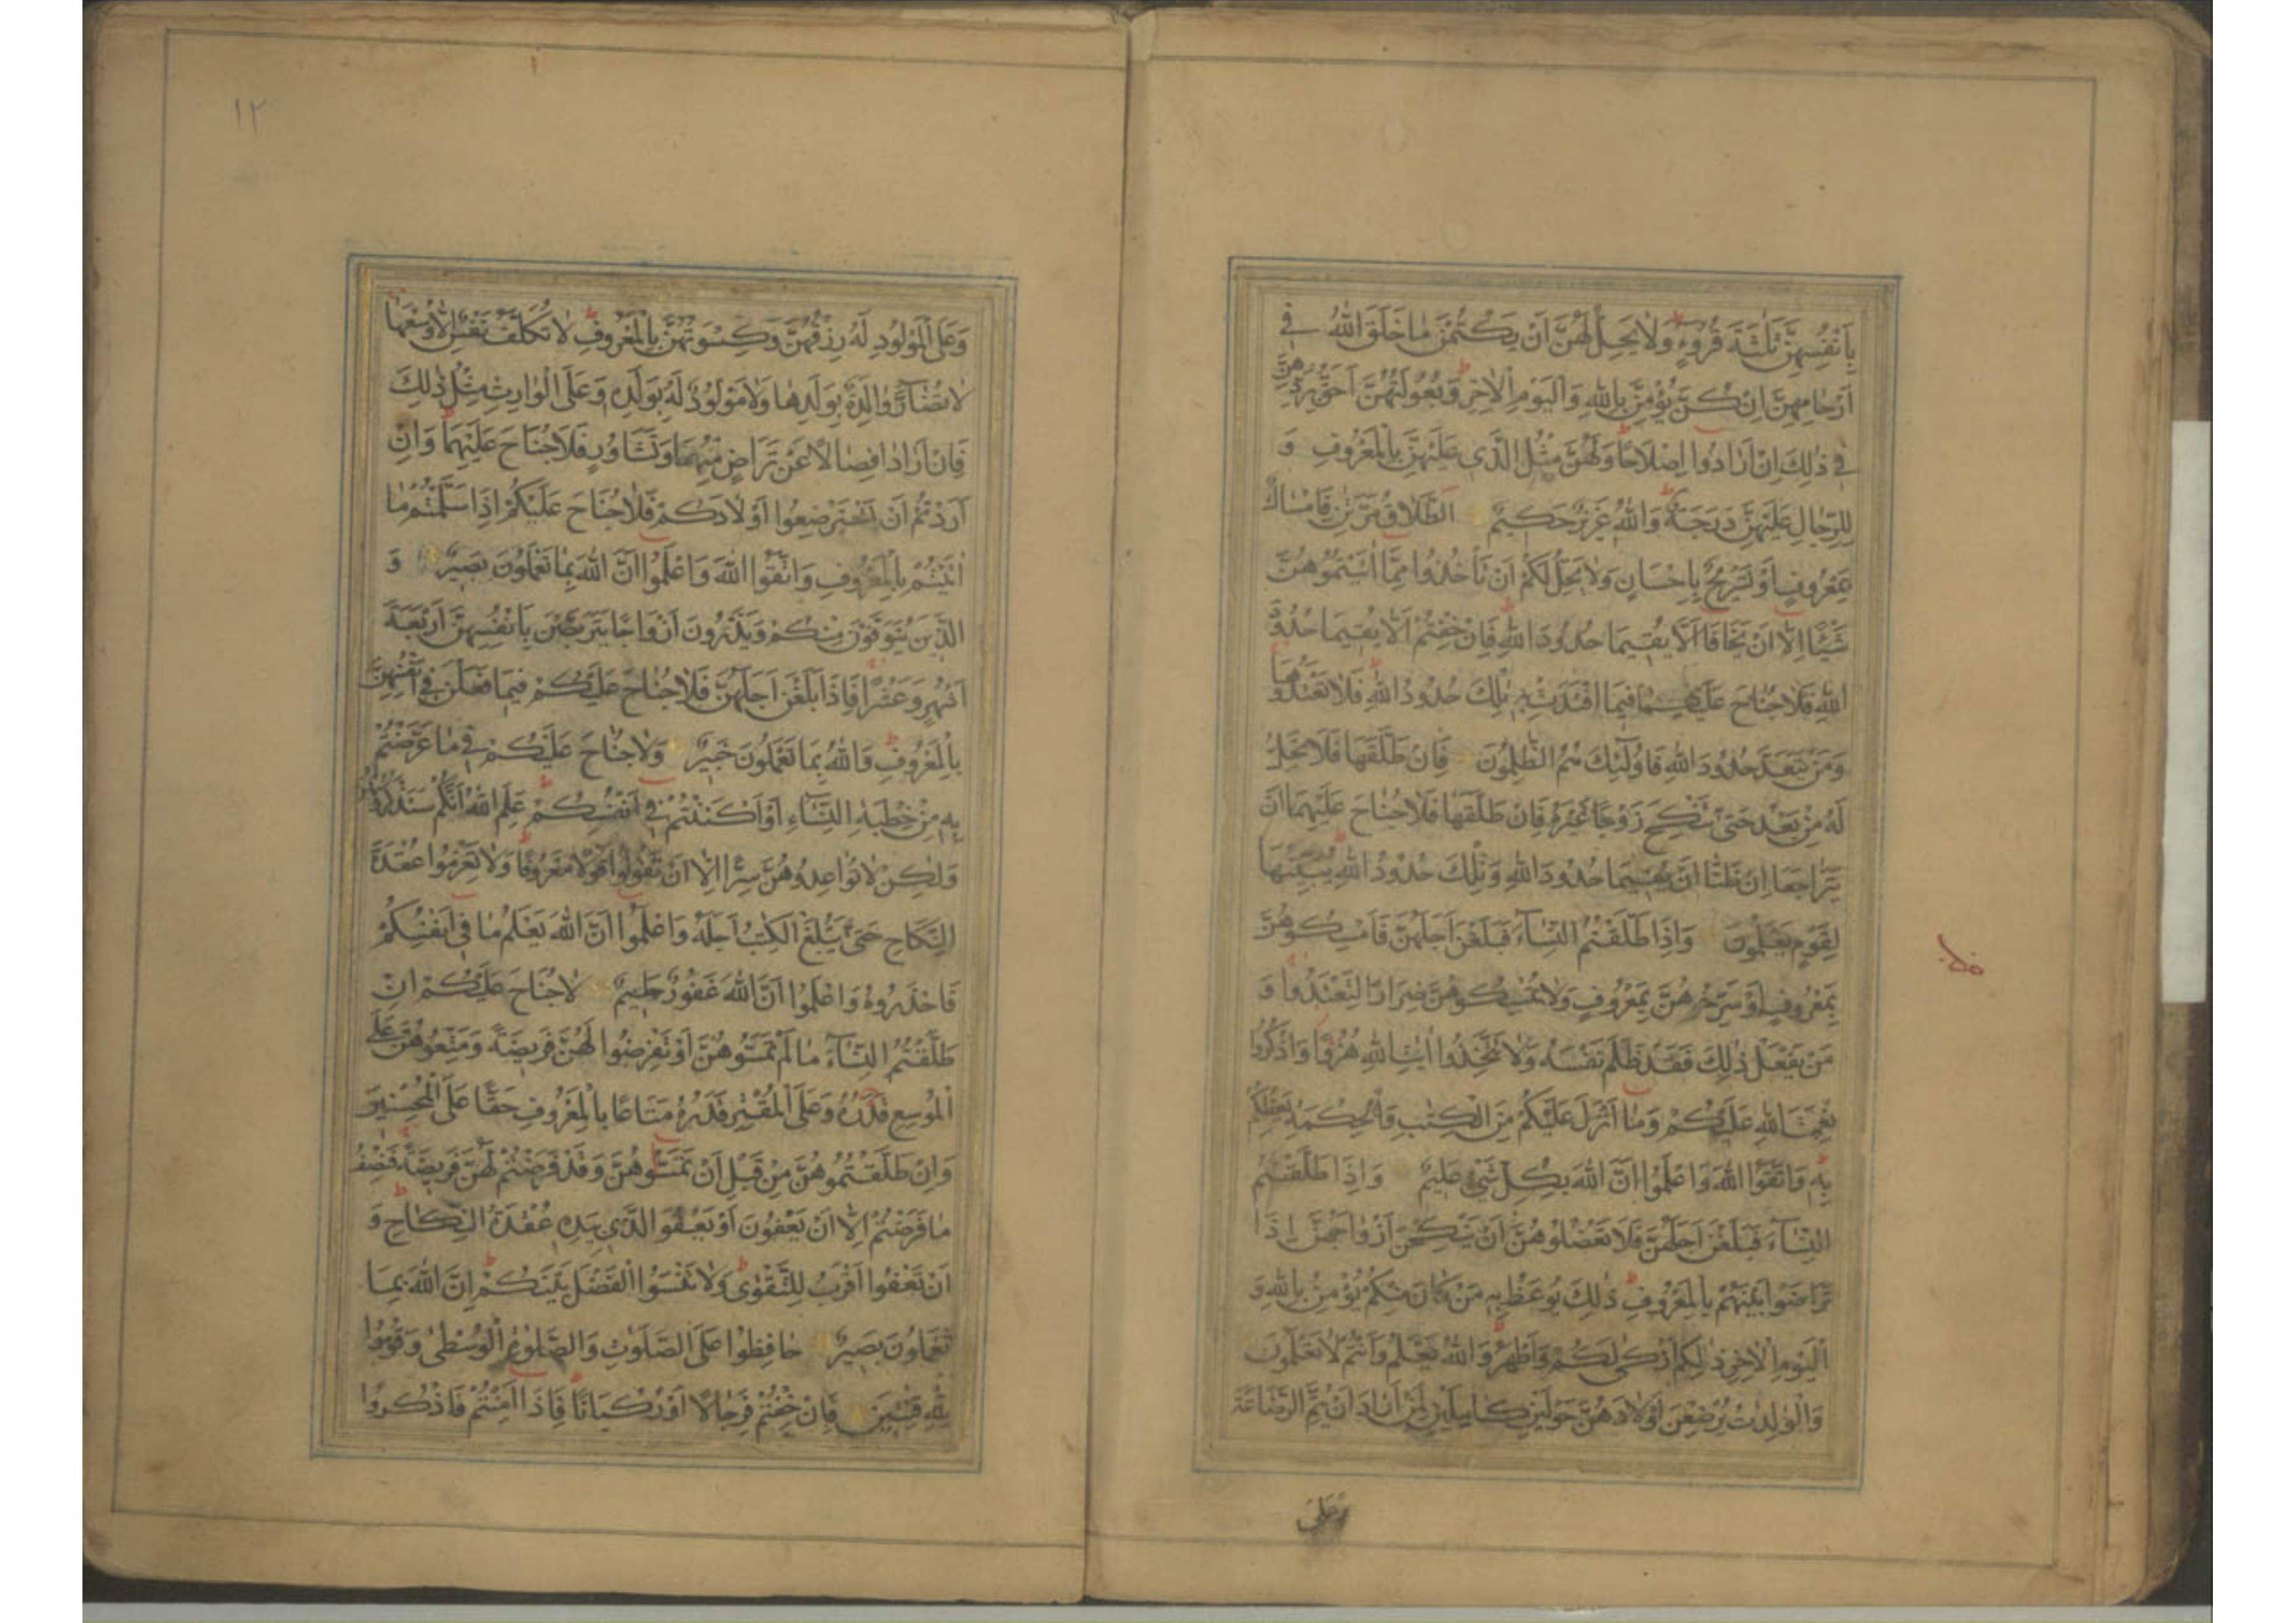 بِاَنْفُسِهِنَّ ثَلٰثَةَ قُرُوءٍ وَلَا يَحِلُّ لَهُنَّ اَنْ يَكْتُمْنَ مَا خَلَقَ اللّٰهُ فِى
اَرْحَامِهِنَّ اِنْ كُنَّ يُؤْمِنَّ بِاللّٰهِ وَالْيَوْمِ الْاٰخِرِ وَبُعُولَتُهُنَّ اَحَقُّ بِرَدِّهِنَّ
فِى ذٰلِكَ اِنْ اَرَادُوا اِصْلَاحًا وَلَهُنَّ مِثْلُ الَّذِى عَلَيْهِنَّ بِالْمَعْرُوفِ وَ
لِلرِّجَالِ عَلَيْهِنَّ دَرَجَةٌ وَاللّٰهُ عَزِيزٌ حَكِيمٌ اَلطَّلَاقُ مَرَّتٰنِ فَاِمْسَاكٌ
بِمَعْرُوفٍ اَوْ تَسْرِيحٌ بِاِحْسَانٍ وَلَا يَحِلُّ لَكُمْ اَنْ تَأْخُذُوا مِمَّا اٰتَيْتُمُوهُنَّ
شَيْئًا اِلَّا اَنْ يَخَافَا اَلَّا يُقِيمَا حُدُودَ اللّٰهِ فَاِنْ خِفْتُمْ اَلَّا يُقِيمَا حُدُودَ
اللّٰهِ فَلَا جُنَاحَ عَلَيْهِمَا فِيمَا افْتَدَتْ بِهِ تِلْكَ حُدُودُ اللّٰهِ فَلَا تَعْتَدُوهَا
وَمَنْ يَتَعَدَّ حُدُودَ اللّٰهِ فَاُولٰئِكَ هُمُ الظّٰلِمُونَ فَاِنْ طَلَّقَهَا فَلَا تَحِلُّ
لَهُ مِنْ بَعْدُ حَتّٰى تَنْكِحَ زَوْجًا غَيْرَهُ فَاِنْ طَلَّقَهَا فَلَا جُنَاحَ عَلَيْهِمَا اَنْ
يَتَرَاجَعَا اِنْ ظَنَّا اَنْ يُقِيمَا حُدُودَ اللّٰهِ وَتِلْكَ حُدُودُ اللّٰهِ يُبَيِّنُهَا
لِقَوْمٍ يَعْلَمُونَ وَاِذَا طَلَّقْتُمُ النِّسَاءَ فَبَلَغْنَ اَجَلَهُنَّ فَاَمْسِكُوهُنَّ
بِمَعْرُوفٍ اَوْ سَرِّحُوهُنَّ بِمَعْرُوفٍ وَلَا تُمْسِكُوهُنَّ ضِرَارًا لِتَعْتَدُوا وَ
مَنْ يَفْعَلْ ذٰلِكَ فَقَدْ ظَلَمَ نَفْسَهُ وَلَا تَتَّخِذُوا اٰيٰتِ اللّٰهِ هُزُوًا وَاذْكُرُوا
نِعْمَتَ اللّٰهِ عَلَيْكُمْ وَمَا اَنْزَلَ عَلَيْكُمْ مِنَ الْكِتٰبِ وَالْحِكْمَةِ يَعِظُكُمْ
بِهِ وَاتَّقُوا اللّٰهَ وَاعْلَمُوا اَنَّ اللّٰهَ بِكُلِّ شَىْءٍ عَلِيمٌ وَاِذَا طَلَّقْتُمُ
النِّسَاءَ فَبَلَغْنَ اَجَلَهُنَّ فَلَا تَعْضُلُوهُنَّ اَنْ يَنْكِحْنَ اَزْوَاجَهُنَّ اِذَا
تَرَاضَوْا بَيْنَهُمْ بِالْمَعْرُوفِ ذٰلِكَ يُوعَظُ بِهِ مَنْ كَانَ مِنْكُمْ يُؤْمِنُ بِاللّٰهِ وَ
الْيَوْمِ الْاٰخِرِ ذٰلِكُمْ اَزْكٰى لَكُمْ وَاَطْهَرُ وَاللّٰهُ يَعْلَمُ وَاَنْتُمْ لَا تَعْلَمُونَ
وَالْوٰلِدٰتُ يُرْضِعْنَ اَوْلَادَهُنَّ حَوْلَيْنِ كَامِلَيْنِ لِمَنْ اَرَادَ اَنْ يُتِمَّ الرَّضَاعَةَ
وَعَلَى
١٢
وَعَلَى الْمَوْلُودِ لَهُ رِزْقُهُنَّ وَكِسْوَتُهُنَّ بِالْمَعْرُوفِ لَا تُكَلَّفُ نَفْسٌ اِلَّا وُسْعَهَا
لَا تُضَارَّ وَالِدَةٌ بِوَلَدِهَا وَلَا مَوْلُودٌ لَهُ بِوَلَدِهِ وَعَلَى الْوَارِثِ مِثْلُ ذٰلِكَ
فَاِنْ اَرَادَا فِصَالًا عَنْ تَرَاضٍ مِنْهُمَا وَتَشَاوُرٍ فَلَا جُنَاحَ عَلَيْهِمَا وَاِنْ
اَرَدْتُمْ اَنْ تَسْتَرْضِعُوا اَوْلَادَكُمْ فَلَا جُنَاحَ عَلَيْكُمْ اِذَا سَلَّمْتُمْ مَا
اٰتَيْتُمْ بِالْمَعْرُوفِ وَاتَّقُوا اللّٰهَ وَاعْلَمُوا اَنَّ اللّٰهَ بِمَا تَعْمَلُونَ بَصِيرٌ وَ
الَّذِينَ يُتَوَفَّوْنَ مِنْكُمْ وَيَذَرُونَ اَزْوَاجًا يَتَرَبَّصْنَ بِاَنْفُسِهِنَّ اَرْبَعَةَ
اَشْهُرٍ وَعَشْرًا فَاِذَا بَلَغْنَ اَجَلَهُنَّ فَلَا جُنَاحَ عَلَيْكُمْ فِيمَا فَعَلْنَ فِى اَنْفُسِهِنَّ
بِالْمَعْرُوفِ وَاللّٰهُ بِمَا تَعْمَلُونَ خَبِيرٌ وَلَا جُنَاحَ عَلَيْكُمْ فِى مَا عَرَّضْتُمْ
بِهِ مِنْ خِطْبَةِ النِّسَاءِ اَوْ اَكْنَنْتُمْ فِى اَنْفُسِكُمْ عَلِمَ اللّٰهُ اَنَّكُمْ سَتَذْكُرُونَهُنَّ
وَلٰكِنْ لَا تُوَاعِدُوهُنَّ سِرًّا اِلَّا اَنْ تَقُولُوا قَوْلًا مَعْرُوفًا وَلَا تَعْزِمُوا عُقْدَةَ
النِّكَاحِ حَتّٰى يَبْلُغَ الْكِتٰبُ اَجَلَهُ وَاعْلَمُوا اَنَّ اللّٰهَ يَعْلَمُ مَا فِى اَنْفُسِكُمْ
فَاحْذَرُوهُ وَاعْلَمُوا اَنَّ اللّٰهَ غَفُورٌ حَلِيمٌ لَا جُنَاحَ عَلَيْكُمْ اِنْ
طَلَّقْتُمُ النِّسَاءَ مَا لَمْ تَمَسُّوهُنَّ اَوْ تَفْرِضُوا لَهُنَّ فَرِيضَةً وَمَتِّعُوهُنَّ عَلَى
الْمُوسِعِ قَدَرُهُ وَعَلَى الْمُقْتِرِ قَدَرُهُ مَتَاعًا بِالْمَعْرُوفِ حَقًّا عَلَى الْمُحْسِنِينَ
وَاِنْ طَلَّقْتُمُوهُنَّ مِنْ قَبْلِ اَنْ تَمَسُّوهُنَّ وَقَدْ فَرَضْتُمْ لَهُنَّ فَرِيضَةً فَنِصْفُ
مَا فَرَضْتُمْ اِلَّا اَنْ يَعْفُونَ اَوْ يَعْفُوَ الَّذِى بِيَدِهِ عُقْدَةُ النِّكَاحِ وَ
اَنْ تَعْفُوا اَقْرَبُ لِلتَّقْوٰى وَلَا تَنْسَوُا الْفَضْلَ بَيْنَكُمْ اِنَّ اللّٰهَ بِمَا
تَعْمَلُونَ بَصِيرٌ حَافِظُوا عَلَى الصَّلَوٰتِ وَالصَّلٰوةِ الْوُسْطٰى وَقُومُوا
لِلّٰهِ قٰنِتِينَ فَاِنْ خِفْتُمْ فَرِجَالًا اَوْ رُكْبَانًا فَاِذَا اَمِنْتُمْ فَاذْكُرُوا